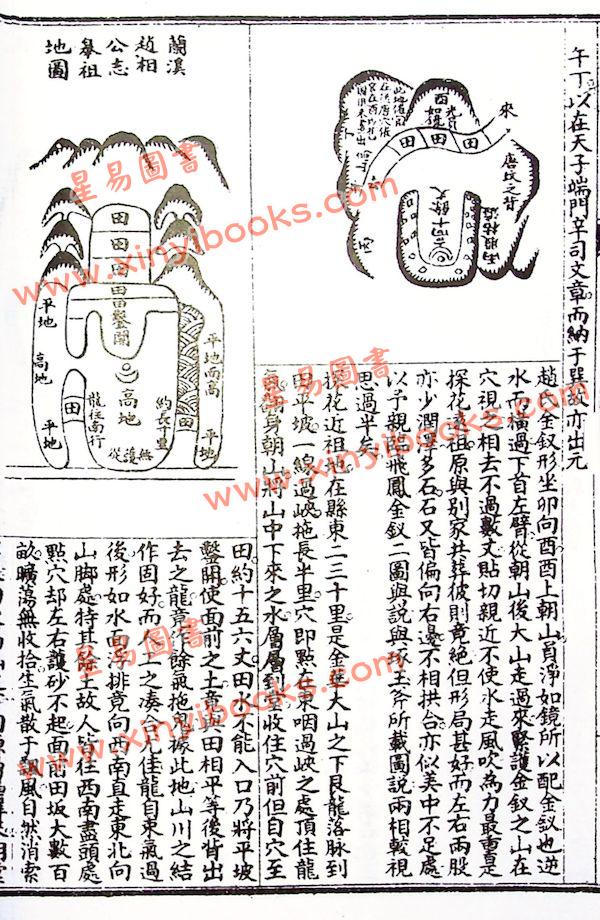 午丁以在天子端門辛司文章而納于巽故亦出元
來
唐坟之背
酉
田
田
田
田
趙氏金釵形坐卯向酉酉上朝山員淨如鏡所以配金釵也逆
水而橫過下首左臂從朝山後大山走過來緊護金釵之山在
穴視之相去不過數丈貼切親近不使水走風吹為力最重是
探花遠祖原與別家共葬彼則竟絕但形局甚好而左右兩股
亦少潤澤多石石又皆偏向右邊不相拱合亦似美中不足處
以予親臨飛鳳金釵二圖與說與琢玉斧所載圖說兩相較視
思過半矣
探花近祖地在縣東二三十里是金華大山之下艮龍落脉到
田平坡一線過峽拖長半里穴即點在東咽過峽之處頂住龍
氣翻身朝山將山中下來之水層層到堂收住穴前但自穴至
蘭溪
趙相
公志
皋祖
地圖
田
田
田
田
鑿開
高地
約長半里
龍往南行
無護從
平地
高地
平地
田
平地而高
田
平地
田約十五六丈田水不能入口乃將平坡
鑿開使面前之土竟與田相平等後背出
去之龍竟作餘氣拖鬼據此地山川之結
作固好而人工之湊合尤佳龍自東氣過
後形如水面浮排竟向西南直走東北向
山脚處特其餘土故人皆在西南盡頭處
點穴却左右護砂不起面前田坂大數百
畝曠蕩無收拾生氣散于飄風自然消索
星易圖書
www.xinyibooks.com
星易圖書
www.xinyibooks.com
星易圖書
www.xinyibooks.com
星易圖書
www.xinyibooks.com